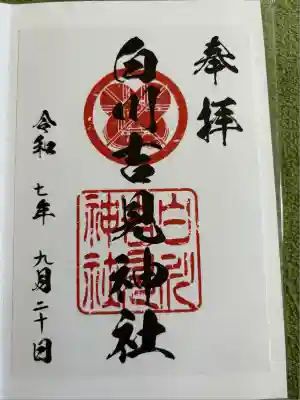 奉拝
白川吉見神社
白川
吉見
神社
令和七年九月二十日